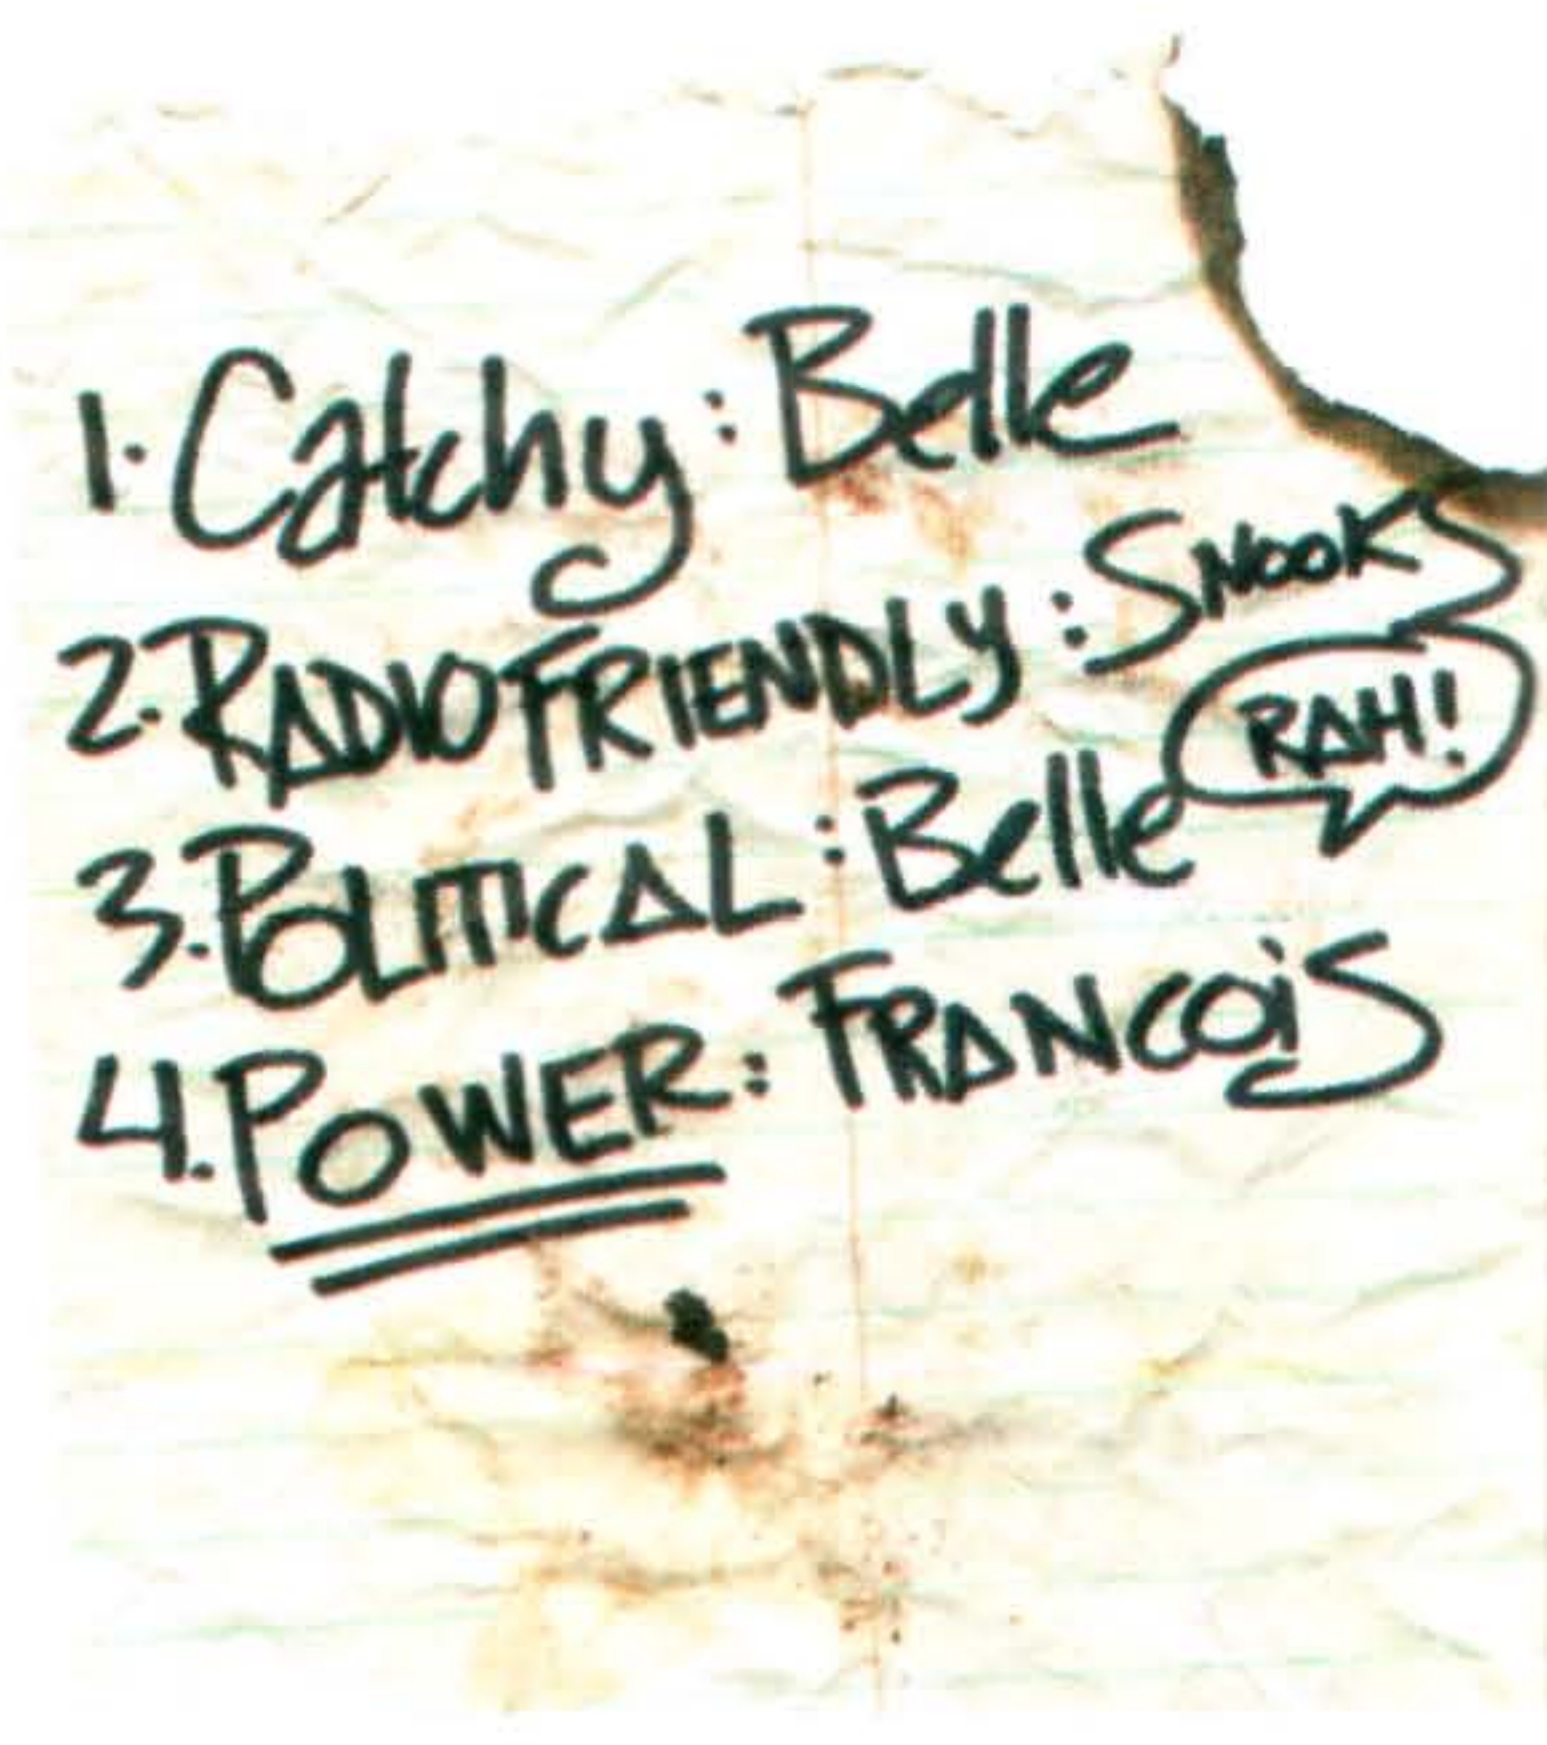 1. Catchy: Belle
2. RADIO FRIENDLY: SNOOKS
RAH!
3. POLITICAL: Belle
4. POWER: FRANCOiS